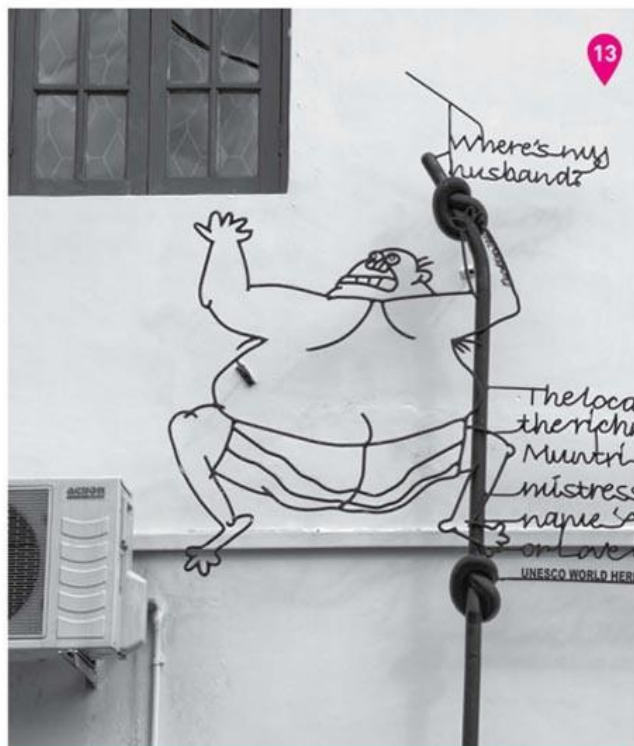 13
Where's my
husband?
The loca
the riche
Muntri
mistress
name
or Love
UNESCO WORLD HERI
ACSON